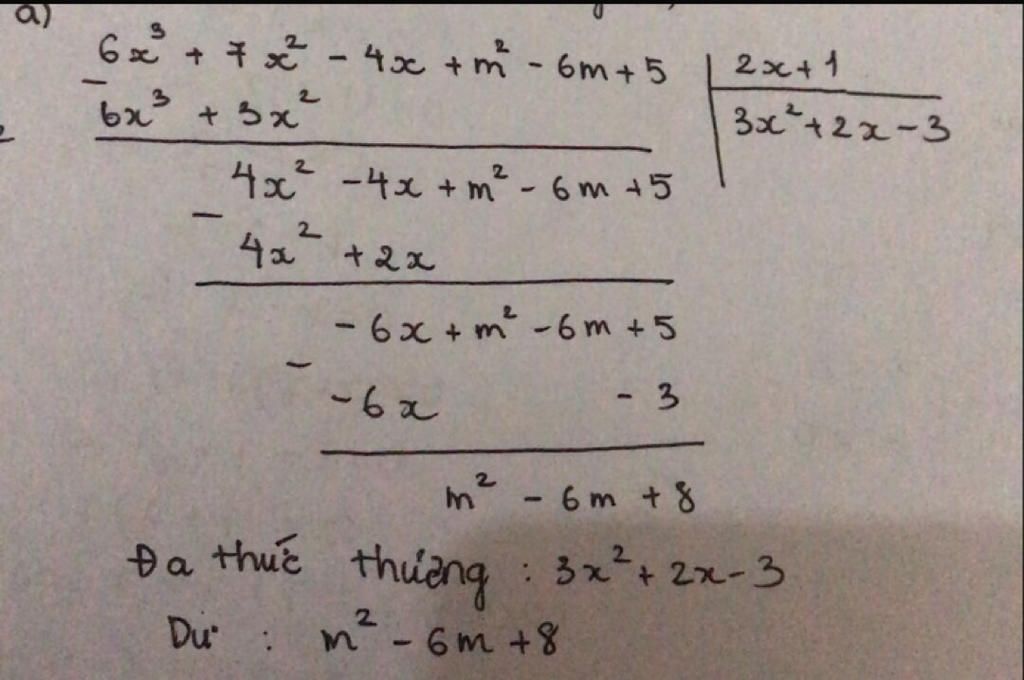 a)
6x³ + 7x² - 4x + m² - 6m + 5 | 2x + 1
- 6x³ + 3x² | 3x² + 2x - 3
4x² - 4x + m² - 6m + 5
-
4x² + 2x
- 6x + m² - 6m + 5
-
- 6x - 3
m² - 6m + 8
Đa thức thương : 3x² + 2x - 3
Dư : m² - 6m + 8